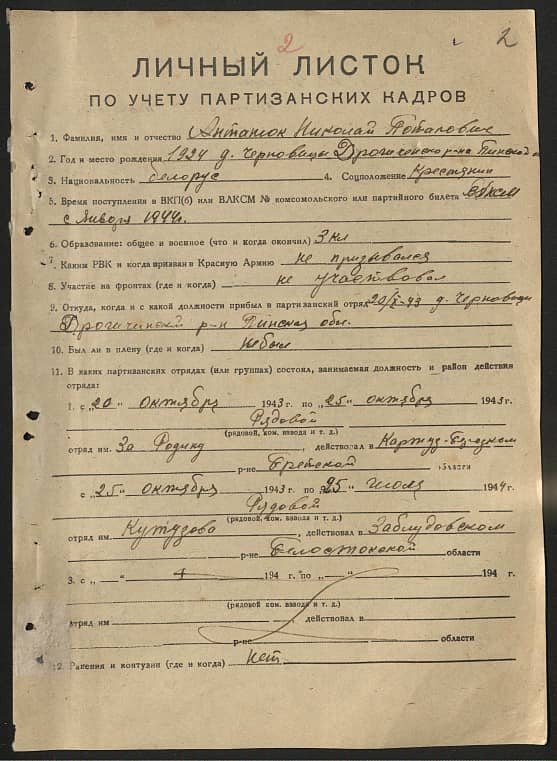 2 2
ЛИЧНЫЙ ЛИСТОК
ПО УЧЕТУ ПАРТИЗАНСКИХ КАДРОВ
1. Фамилия, имя и отчество Антанюк Николай Потапович
2. Год и место рождения 1924 д. Черновицы Дрогиченского р-на Пинской о
3. Национальность белорус 4. Соцположение Крестянин
5. Время поступления в ВКП(б) или ВЛКСМ № комсомольского или партийного билета ВЛКСМ
с Января 1944г.
6. Образование: общее и военное (что и когда окончил) 3 кл
7. Каким РВК и когда призван в Красную Армию не призывался
8. Участие на фронтах (где и когда) не участвовал
9. Откуда, когда и с какой должности прибыл в партизанский отряд 20/X-43 д. Черновицы
Дрогичинский р-н Пинская обл.
10. Был ли в плену (где и когда) небыл
11. В каких партизанских отрядах (или группах) состоял, занимаемая должность и район действия
отряда:
1. с „20" октября 1943 г. по „25" октября 1943 г.
Рядовой
(рядовой, ком. взвода и т. д.)
отряд им. За Родину, действовал в Картуз-Березком
р-не Бретской области
с „25" октября 1943 г. по „25" июля 1944 г.
Рядовой
(рядовой, ком. взвода и т. д.)
отряд им. Кутузова, действовал в Заблудовском
р-не Белостокской области
3. с „ " 194 г. по „ " 194 г.
(рядовой, ком. взвода и т. д.)
отряд им , действовал в
р-не области
12. Ранения и контузии (где и когда) Нет